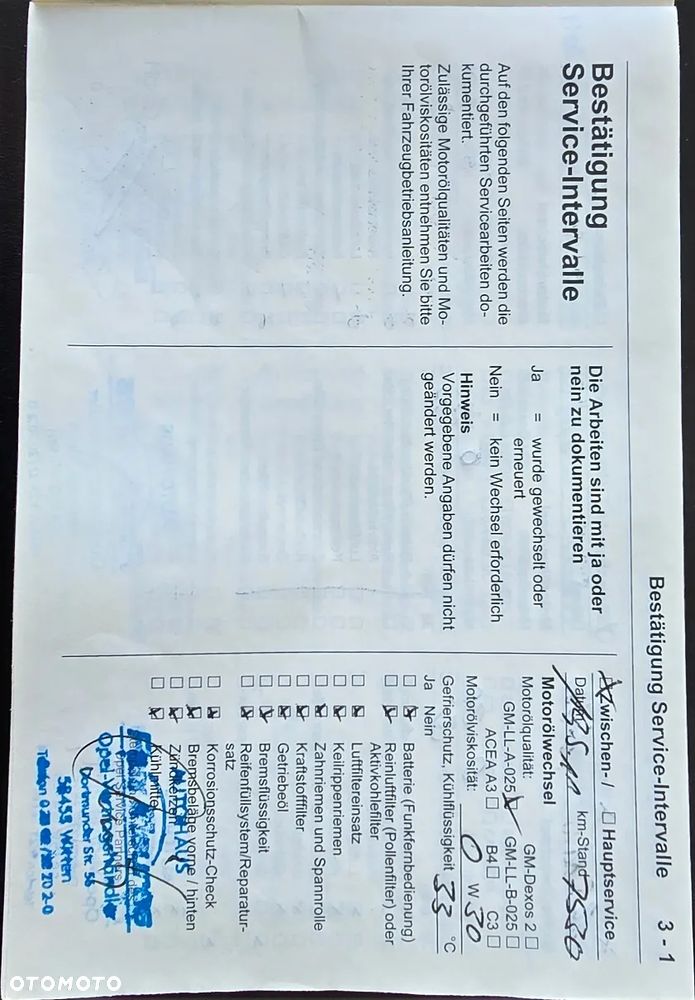 Bestätigung Service-Intervalle 3 - 1
Bestätigung
Service-Intervalle
Auf den folgenden Seiten werden die
durchgeführten Servicearbeiten do-
kumentiert.
Zulässige Motorölqualitäten und Mo-
torölviskositäten entnehmen Sie bitte
Ihrer Fahrzeugbetriebsanleitung.
Die Arbeiten sind mit ja oder
nein zu dokumentieren
Ja = wurde gewechselt oder
erneuert
Nein = kein Wechsel erforderlich
Hinweis
Vorgegebene Angaben dürfen nicht
geändert werden.
Zwischen- / Hauptservice
km-Stand 7530
Motorölwechsel
Motorölqualität: GM-Dexos 2
GM-LL-A-025 GM-LL-B-025
ACEA A3 B4 C3
Motorölviskosität: 0 W 30
Gefrierschutz, Kühlflüssigkeit 33 °C
Ja Nein
Batterie (Funkfernbedienung)
Reinluftfilter (Pollenfilter) oder
Aktivkohlefilter
Luftfiltereinsatz
Keilrippenriemen
Zahnriemen und Spannrolle
Kraftstofffilter
Getriebeöl
Bremsflüssigkeit
Reifenfüllsystem/Reparatur-
satz
Korrosionsschutz-Check
Bremsbeläge vorne / hinten
Zündkerzen
Kühlmittel
AUTOHAUS
Dortmunder Str. 56
58453 Witten
OTOMOTO